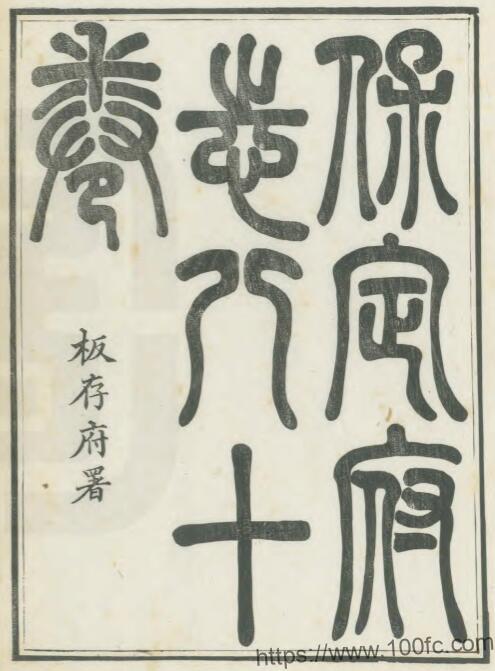 保定府
志八十
卷
板存府署
https://www.100fc.com